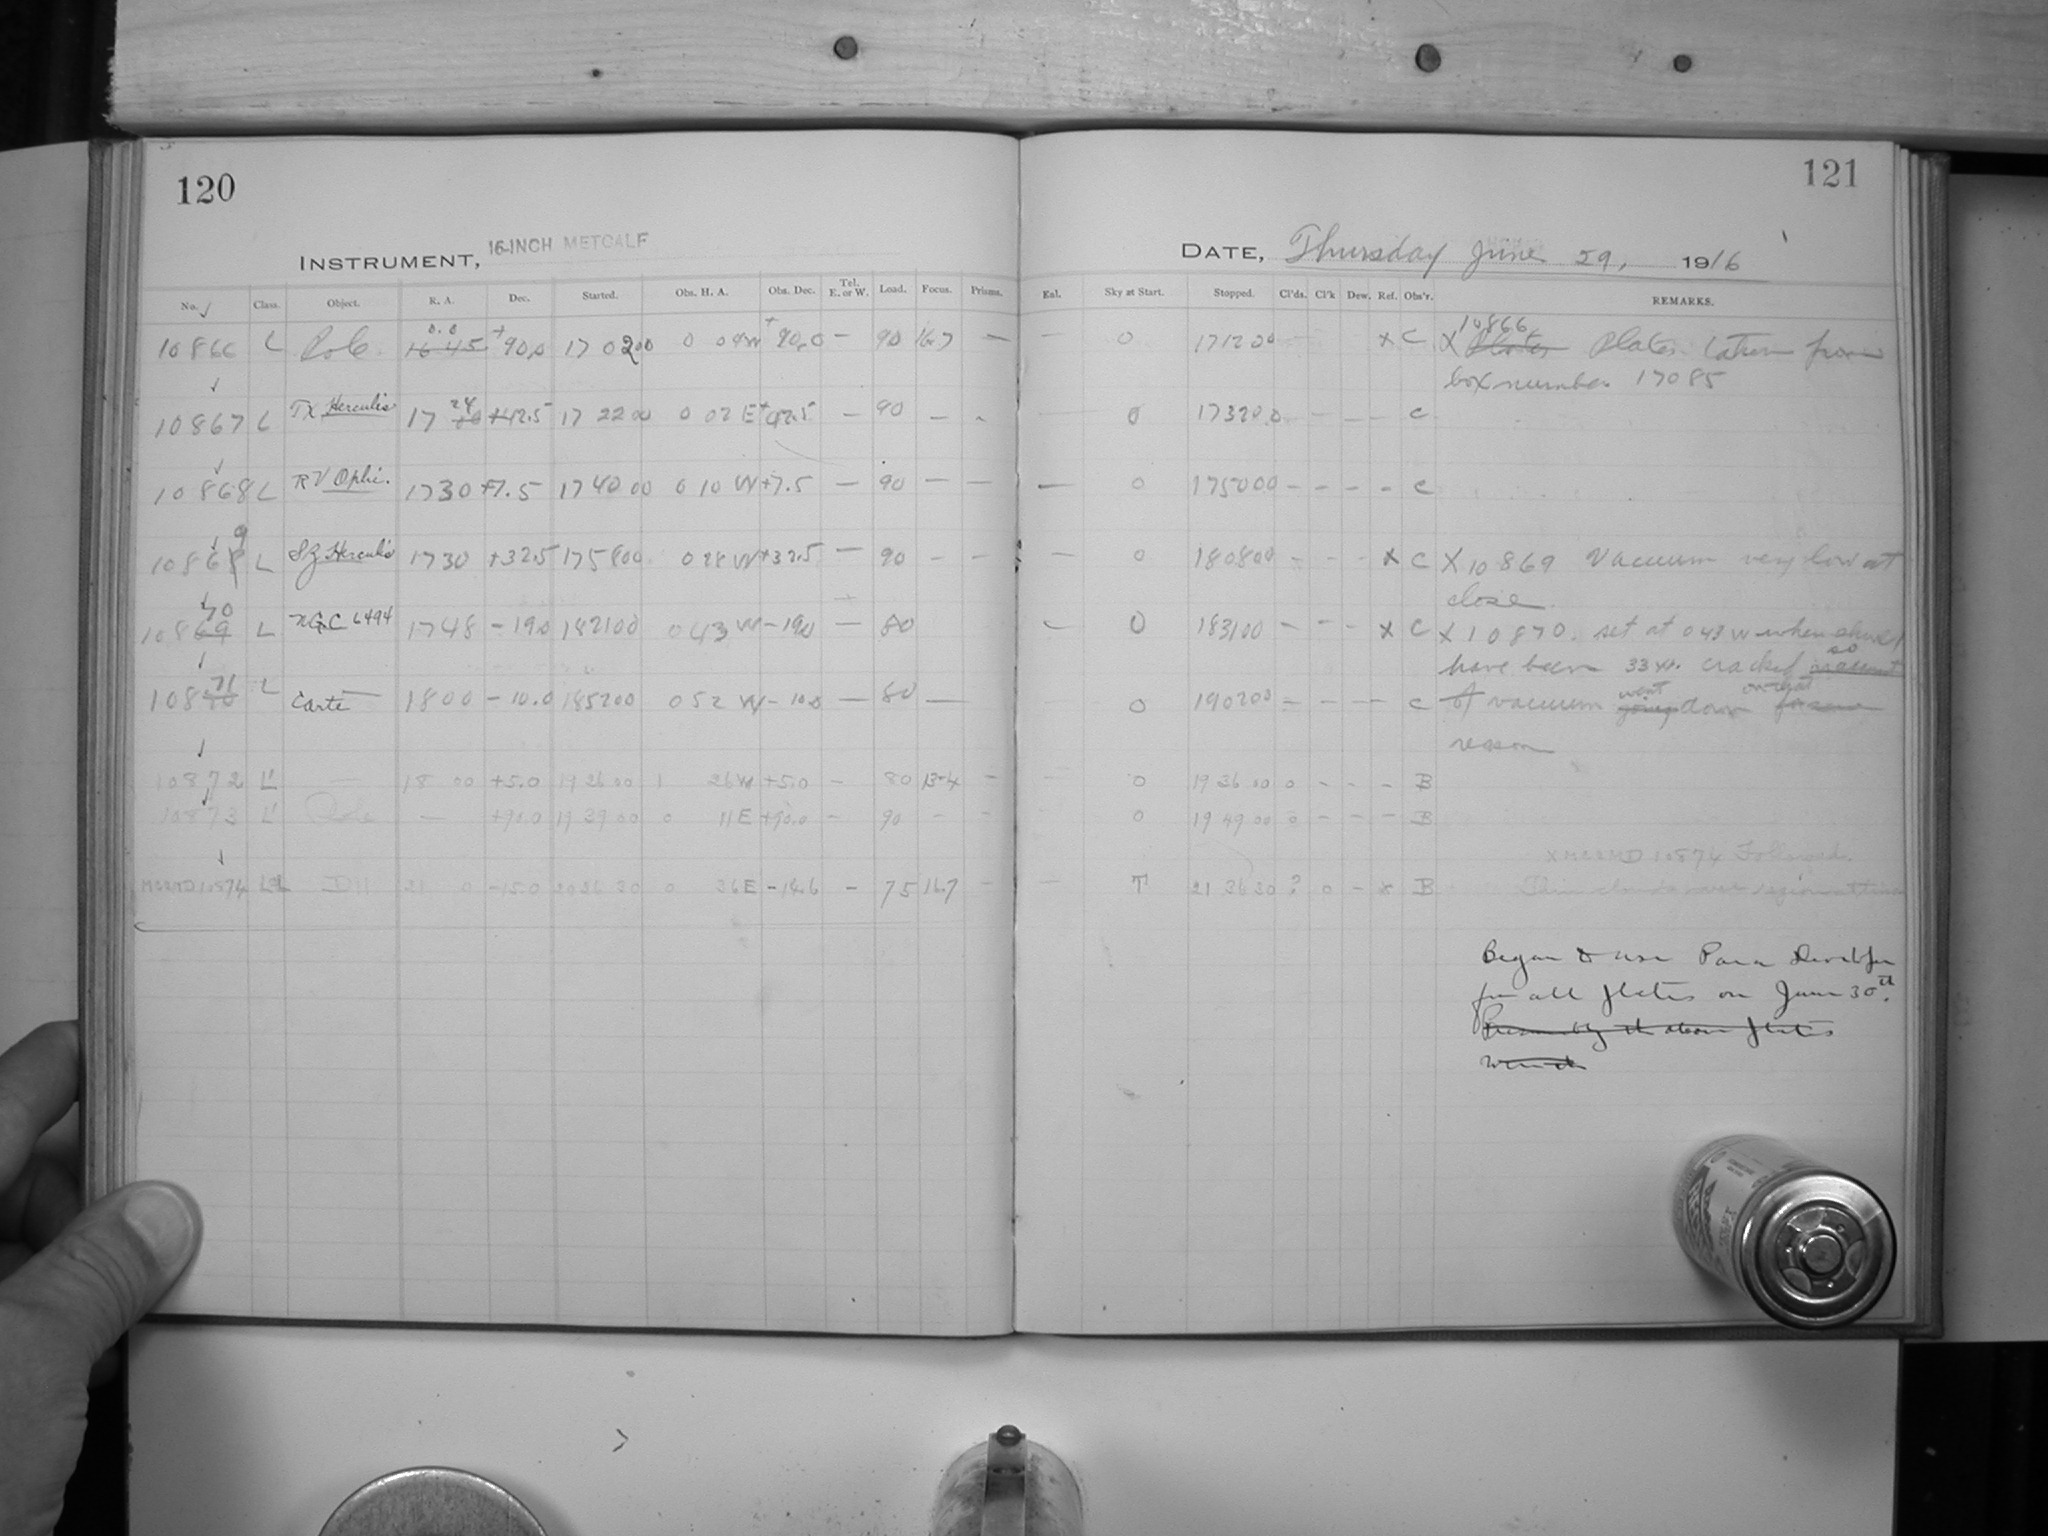 120
INSTRUMENT, 16-INCH METCALF
No. Class. Object. R. A. Dec. Started. Obs. H. A. Obs. Dec. Tel. E. or W. Load. Focus. Prisms.
10866 L Pole 0.0 16 45 +90.0 17 02 00 0 04W +90.0 – 90 16.7 –
10867 L TX Herculis 17 24 +42.5 17 22 00 0 02 E +42.5 – 90 – -
10868 L RV Ophi. 17 30 +7.5 17 40 00 0 10 W +7.5 – 90 – –
10869 L SZ Herculis 17 30 +32.5 17 58 00 0 28 W +32.5 – 90 – –
10869 70 L NGC 6494 17 48 – 19.0 18 21 00 0 43 W – 19.0 – 80
10870 71 L Carte 18 00 – 10.0 18 52 00 0 52 W – 10.0 – 80 –
10872 L' – 18 00 +5.0 19 26 00 1 26W +5.0 – 80 13.4 –
10873 L' Pole – +90.0 19 39 00 0 11E +90.0 – 90 – –
10874 21 0 –15.0 20 26 30 0 36E –14.6 – 75 16.7 –
121
DATE, Thursday June 29, 1916
Enl. Sky at Start. Stopped. Cl'ds. Cl'k Dew. Ref. Obs'r. REMARKS.
– 0 17 12 00 x C X 10866 Plates Plates taken from
box number 17085
0 17 32 00 – – – C
– 0 17 50 00 – – – – C
– 0 18 08 00 – – – x C X 10869 Vacuum very low at
close
– 0 18 31 00 – – – x C X 10870. set at 0 43 W when should
have been 33 W. cracked so
0 19 02 00 – – – – C vacuum went going down
reason
– 0 19 36 00 0 – – – B
0 19 49 00 0 – – – B
10874 Followed.
– T 21 26 30 ? 0 – x B Thin clouds over region at times
Began to use Para Developer
for all plates on June 30th.
Presumably the above plates
were